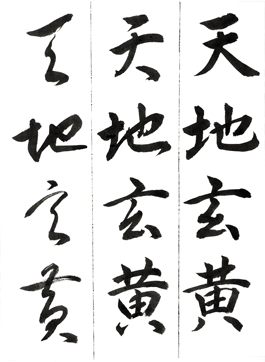 天地玄黄
天地玄黄
天地玄黄